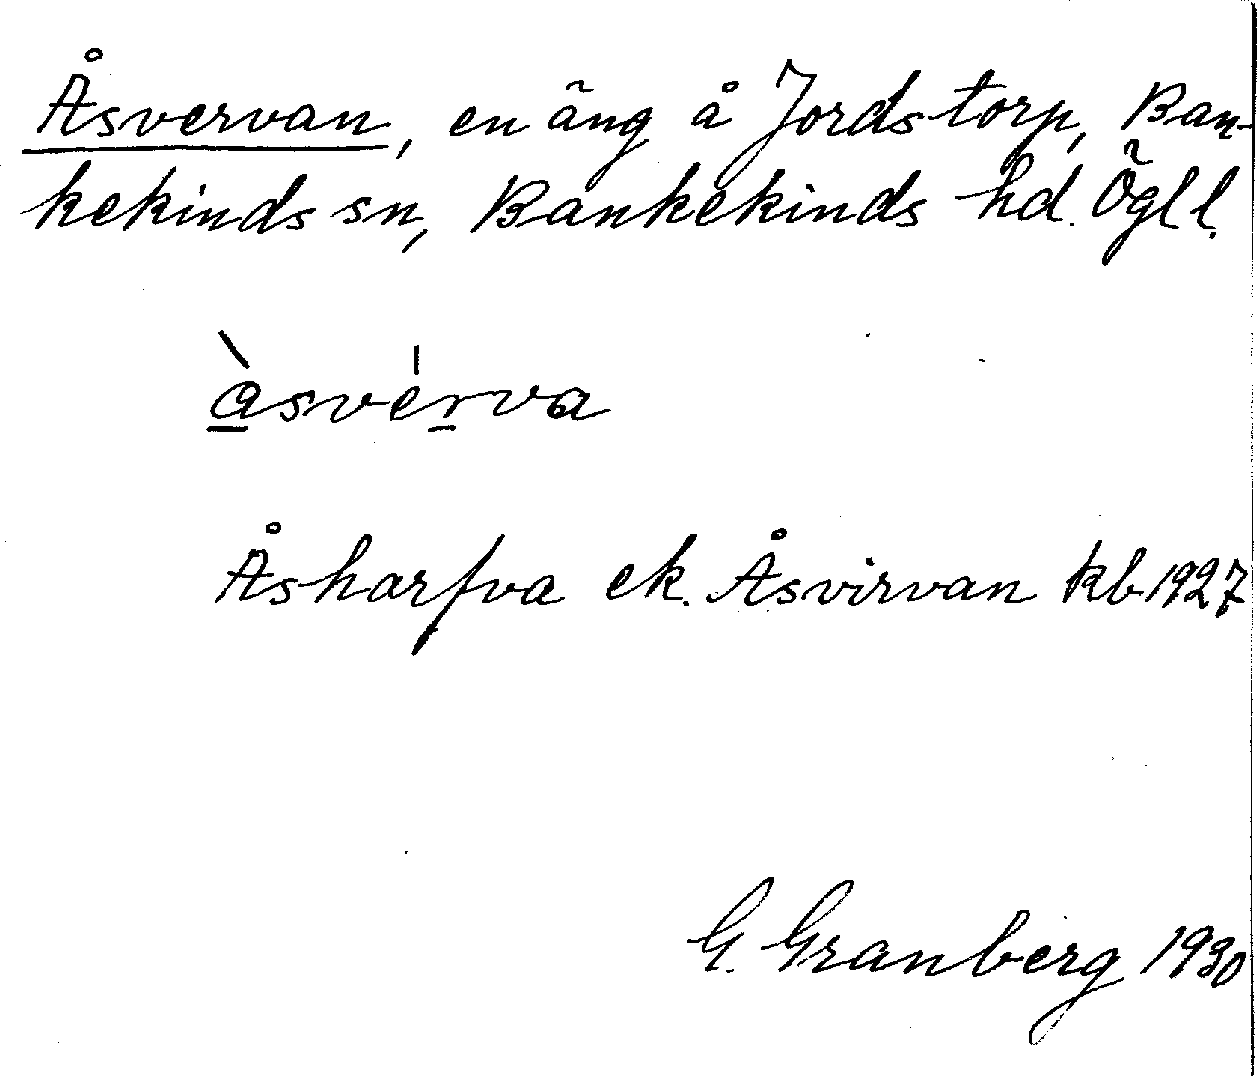 Åsvervan, en äng å Jordstorp, Ban-
kekinds sn, Bankekinds hd. Ögl l.
àsvérva
Åsharfva ek. Åsvirvan kb 1927
G. Granberg 1930